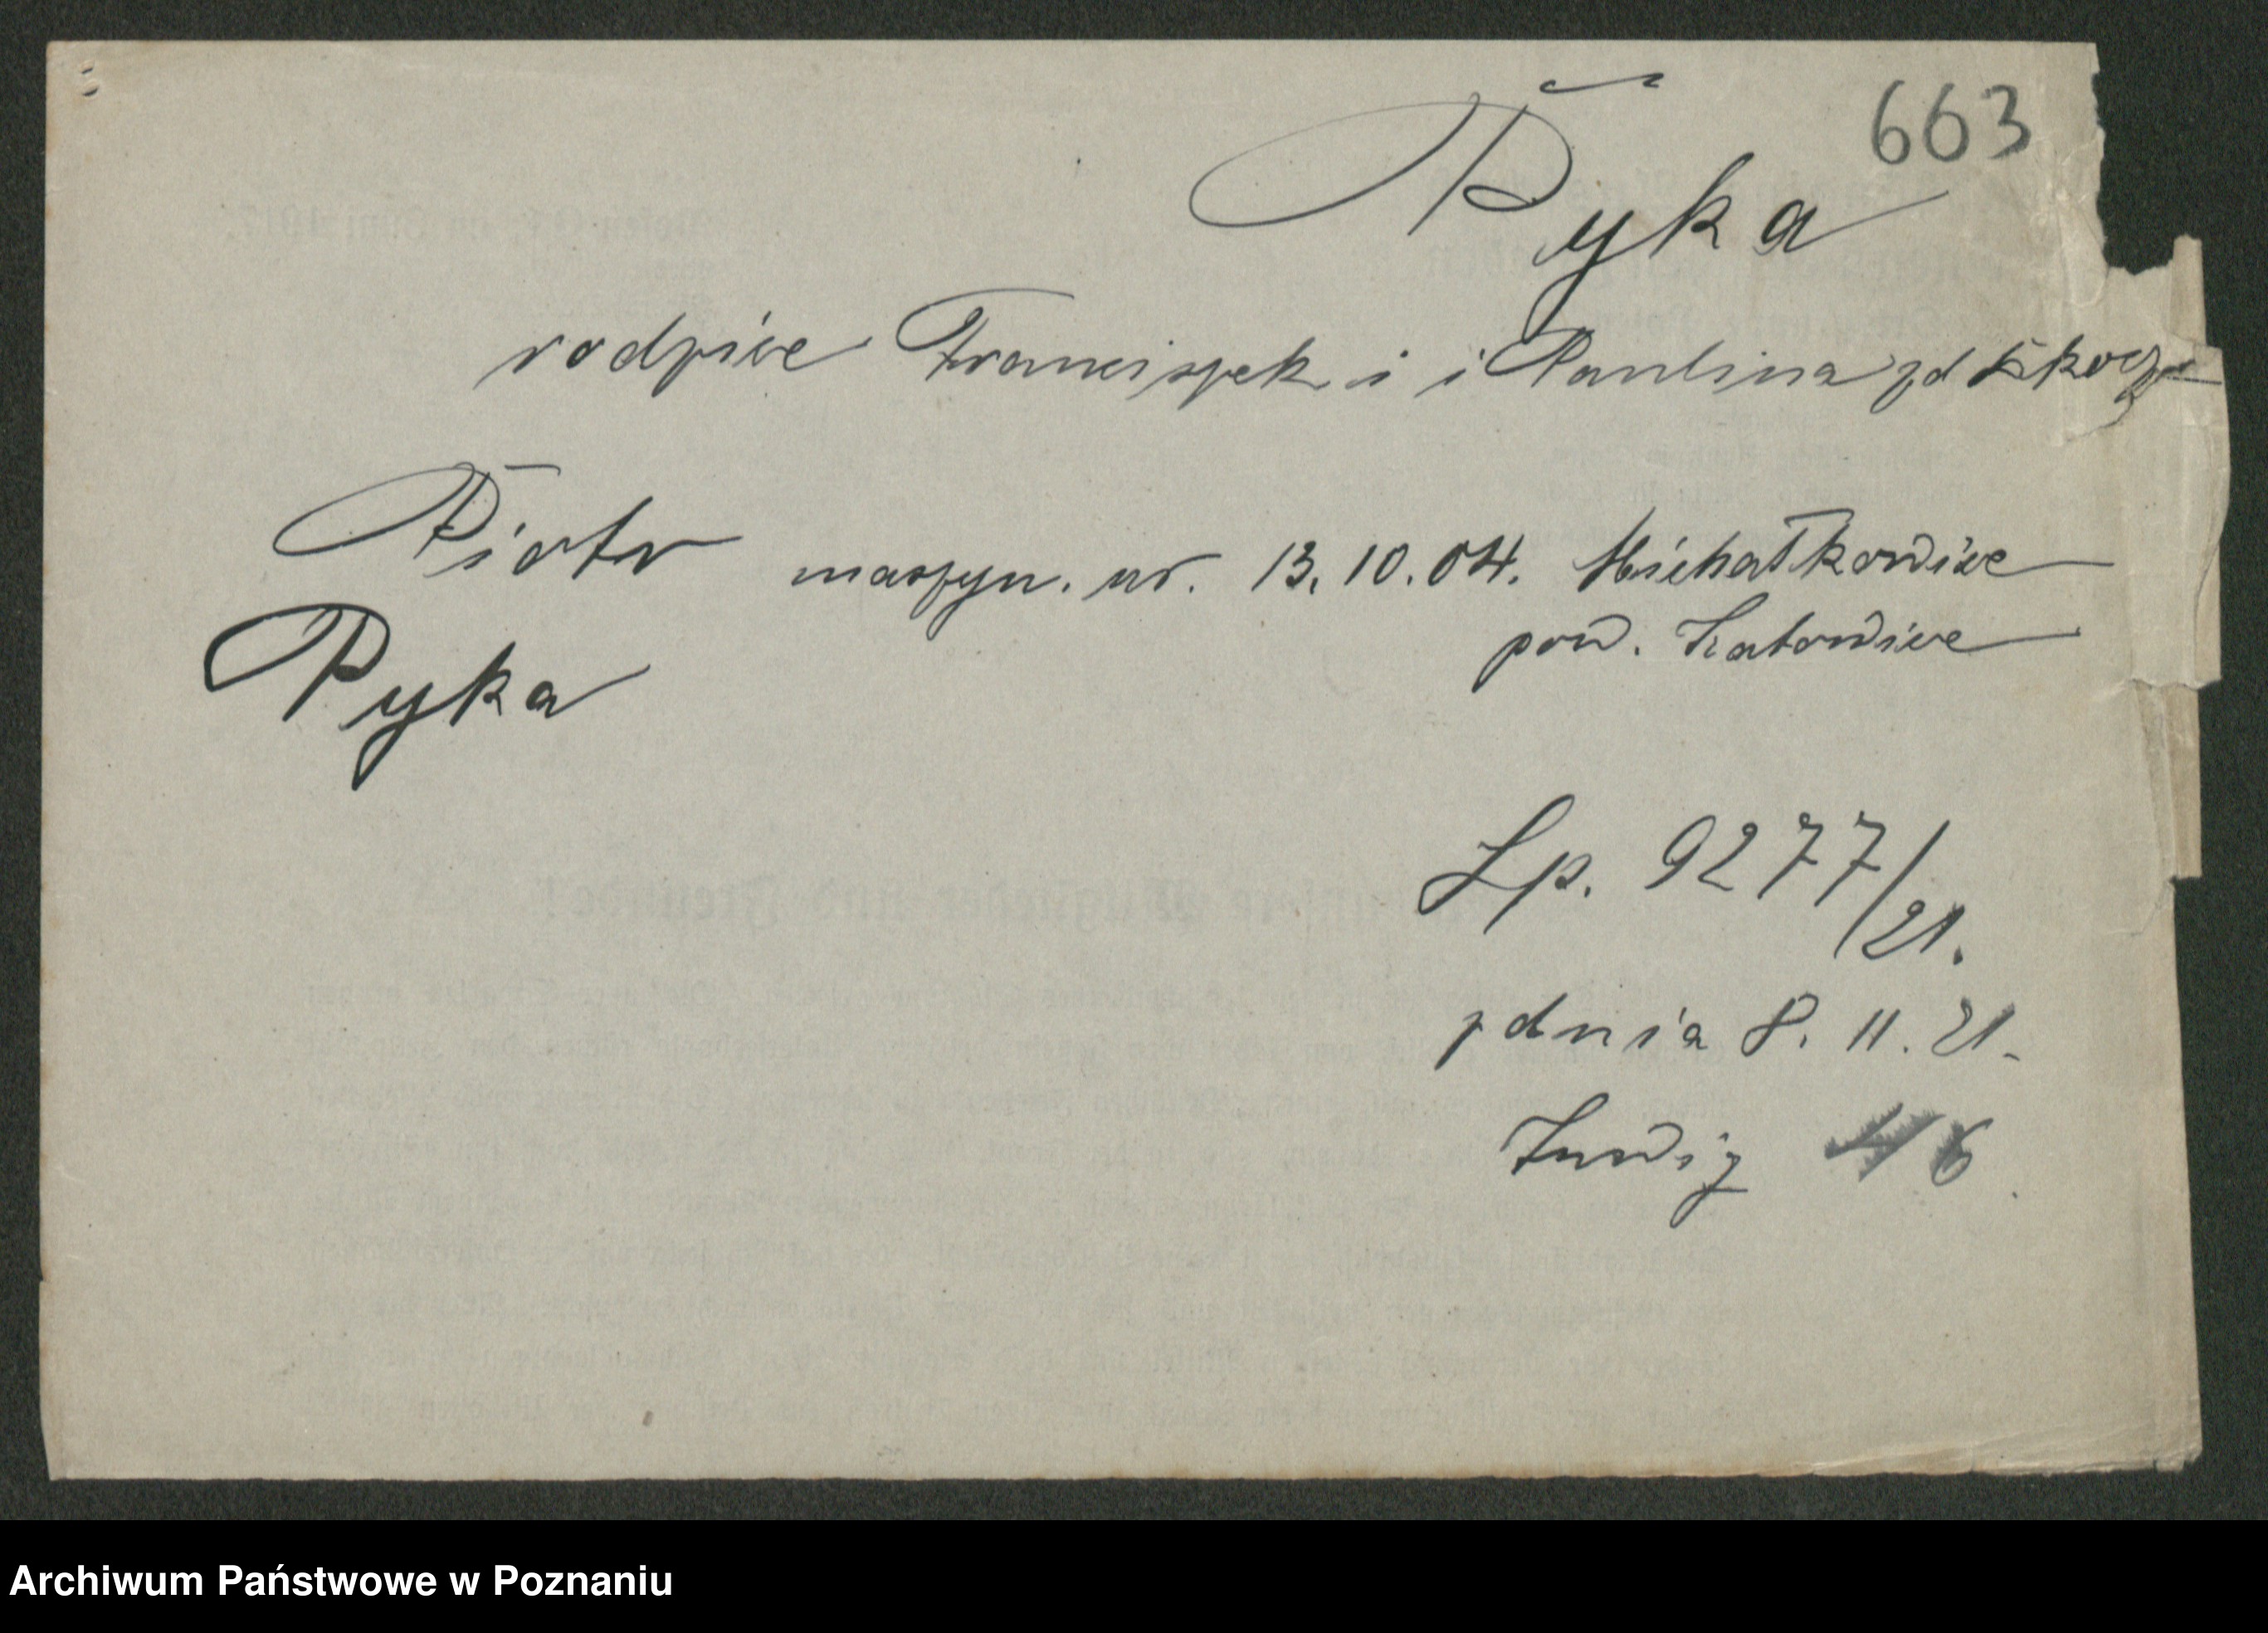 663
Pyka
rodzice Franciszek i i Paulina zd
Piotr maszyn. ur. 13.10.04. Michałkowice
pow. Katowice
Pyka
Lp. 9277/21.
z dnia 8. 11. 21.
46
Archiwum Państwowe w Poznaniu